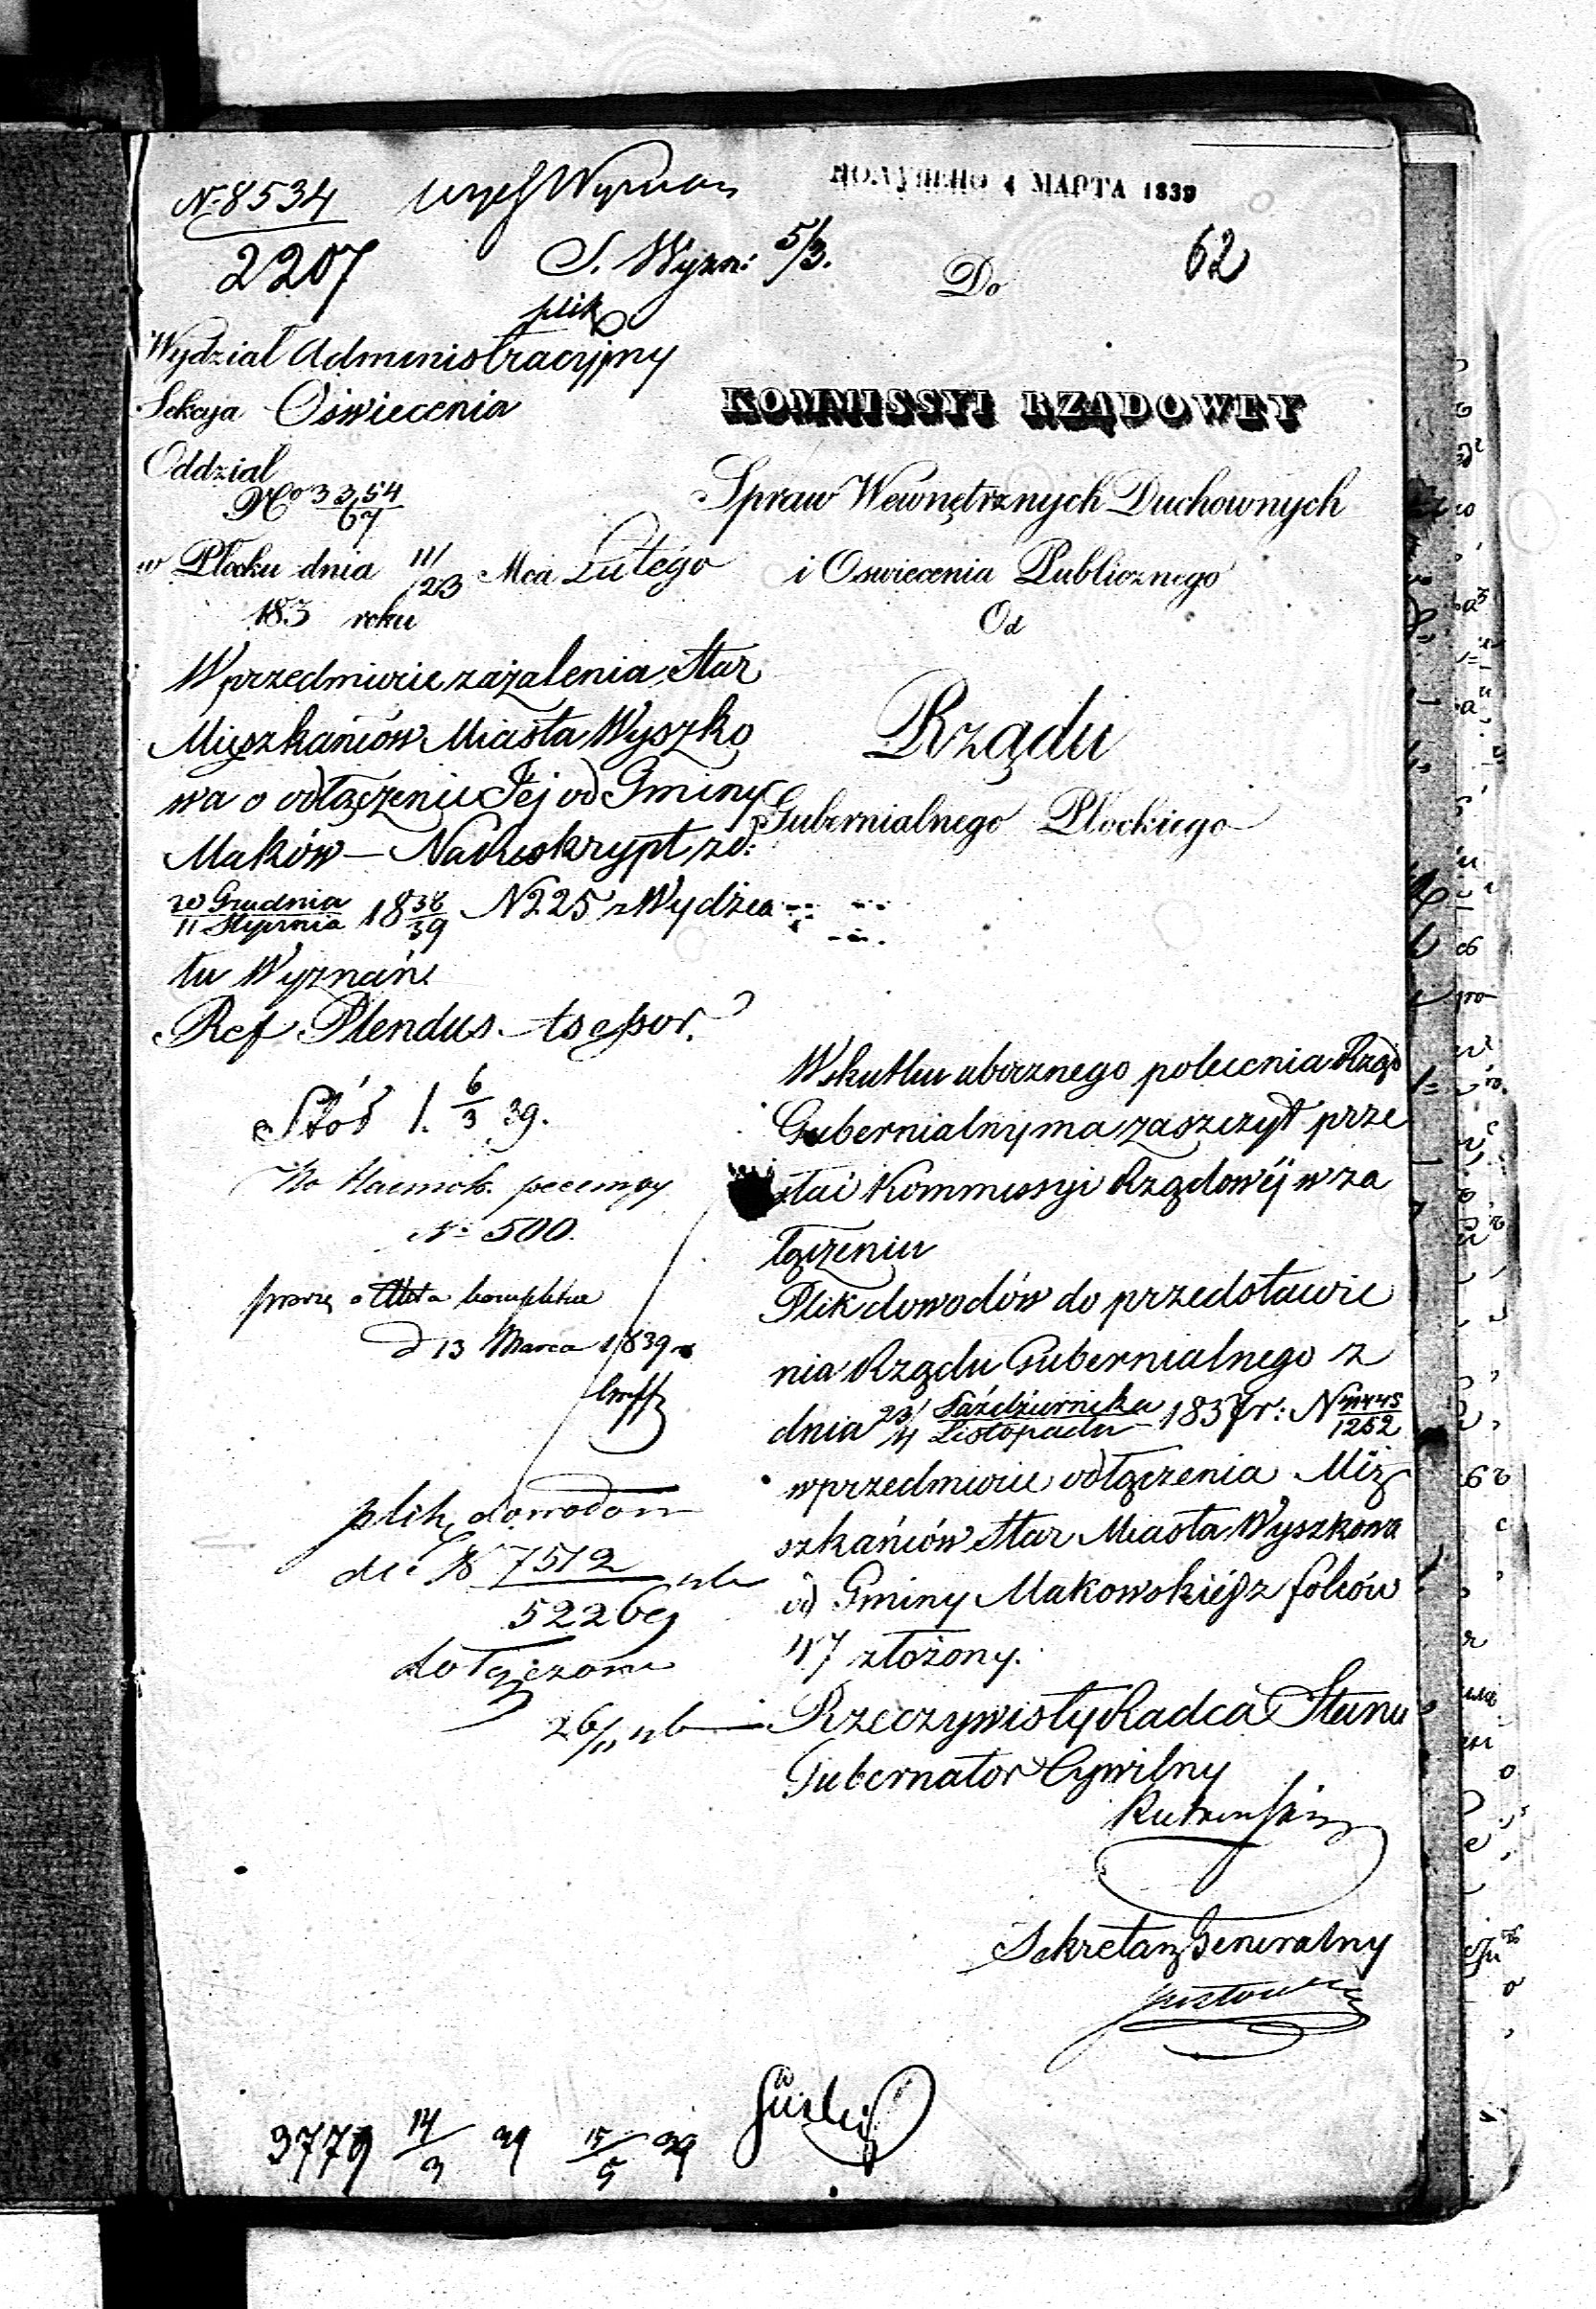 № 8534
2207
S. Wyzn: 5/3.
plik
ПОЛУЧЕНО 4 МАРТА 1839
62
Do
Wydział Administracyjny
Sekcya Oświecenia
Oddział
No 33254/67
w Płocku dnia 11/23 Mca Lutego
183 roku
KOMMISSYI RZĄDOWEY
Spraw Wewnętrznych Duchownych
i Oswiecenia Publicznego
Od
Rządu
Gubernialnego Płockiego
W przedmiocie zażalenia Star
Mieszkańców Miasta Wyszko
wa o odłączeniu Jej od Gminy
Maków – Na Reskrypt zd:
20 Grudnia/11 Stycznia 18 38/39 N 225 z Wydzia
łu Wyznań.
Ref Plendus Assessor.
Stós 1. 6/3 39.
No 500.
proszę o Akta kompletne
d 13 Marca 1839 r
plik dowodów
do N 7512
5226
dołączone
26/11
Wskutku ubocznego polecenia Rząd
Gubernialny ma zaszczyt prze
słać Kommissyi Rządowéj w za
łączeniu
Plik dowodów do przedstawie
nia Rządu Gubernialnego z
dnia 23/4 Października/Listopada 1837 r: N 71445/1252
w przedmiocie odłączenia Mię
szkańców Star Miasta Wyszkowa
od Gminy Makowskiéj z foliów
47 złożony.
Rzeczywisty Radca Stanu
Gubernator Cywilny
Sekretarz Generalny
3779 14/3 39 15/5 39